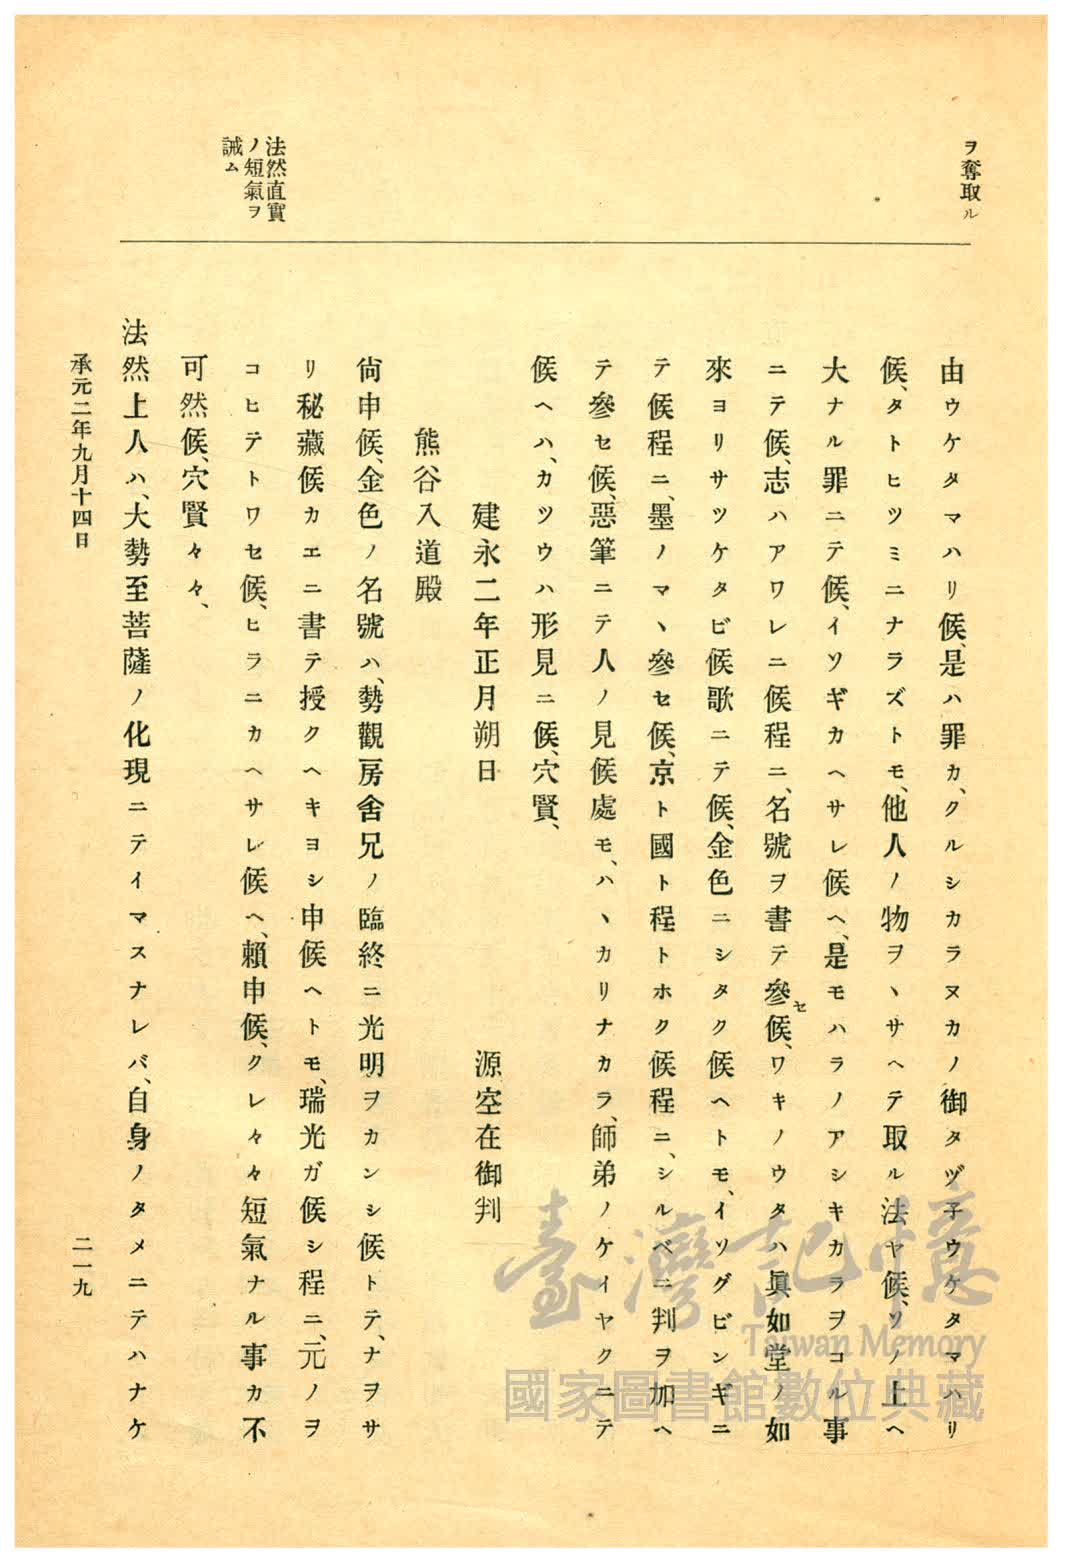 ヲ奪取ル
法然直實
ノ短氣ヲ
誡ム
由ウケタマハリ候、是ハ罪カ、クルシカラヌカノ御タヅ子ウケタマハリ
候、タトヒツミニナラズトモ、他人ノ物ヲヽサヘテ取ル法ヤ候、ソノ上ヘ
大ナル罪ニテ候、イソギカヘサレ候ヘ、是モハラノアシキカラヲコル事
ニテ候、志ハアワレニ候程ニ、名號ヲ書テ參セ候、ワキノウタハ眞如堂ノ如
來ヨリサツケタビ候歌ニテ候、金色ニシタク候ヘトモ、イソグビンギニ
テ候程ニ、墨ノマヽ參セ候、京ト國ト程トホク候程ニ、シルベニ判ヲ加ヘ
テ參セ候、惡筆ニテ人ノ見候處モ、ハヽカリナカラ、師弟ノケイヤクニテ
候ヘハ、カツウハ形見ニ候、穴賢、
建永二年正月朔日　源空在御判
熊谷入道殿
尙申候、金色ノ名號ハ、勢觀房舍兄ノ臨終ニ光明ヲカンシ候トテ、ナヲサ
リ秘藏候カエニ書テ授クヘキヨシ申候ヘトモ、瑞光ガ候シ程ニ、元ノヲ
コヒテトワセ候、ヒラニカヘサレ候ヘ、賴申候、クレ々々短氣ナル事カ不
可然候、穴賢々々、
法然上人ハ、大勢至菩薩ノ化現ニテイマスナレバ、自身ノタメニテハナケ
承元二年九月十四日　二一九
臺灣記憶
Taiwan Memory
國家圖書館數位典藏